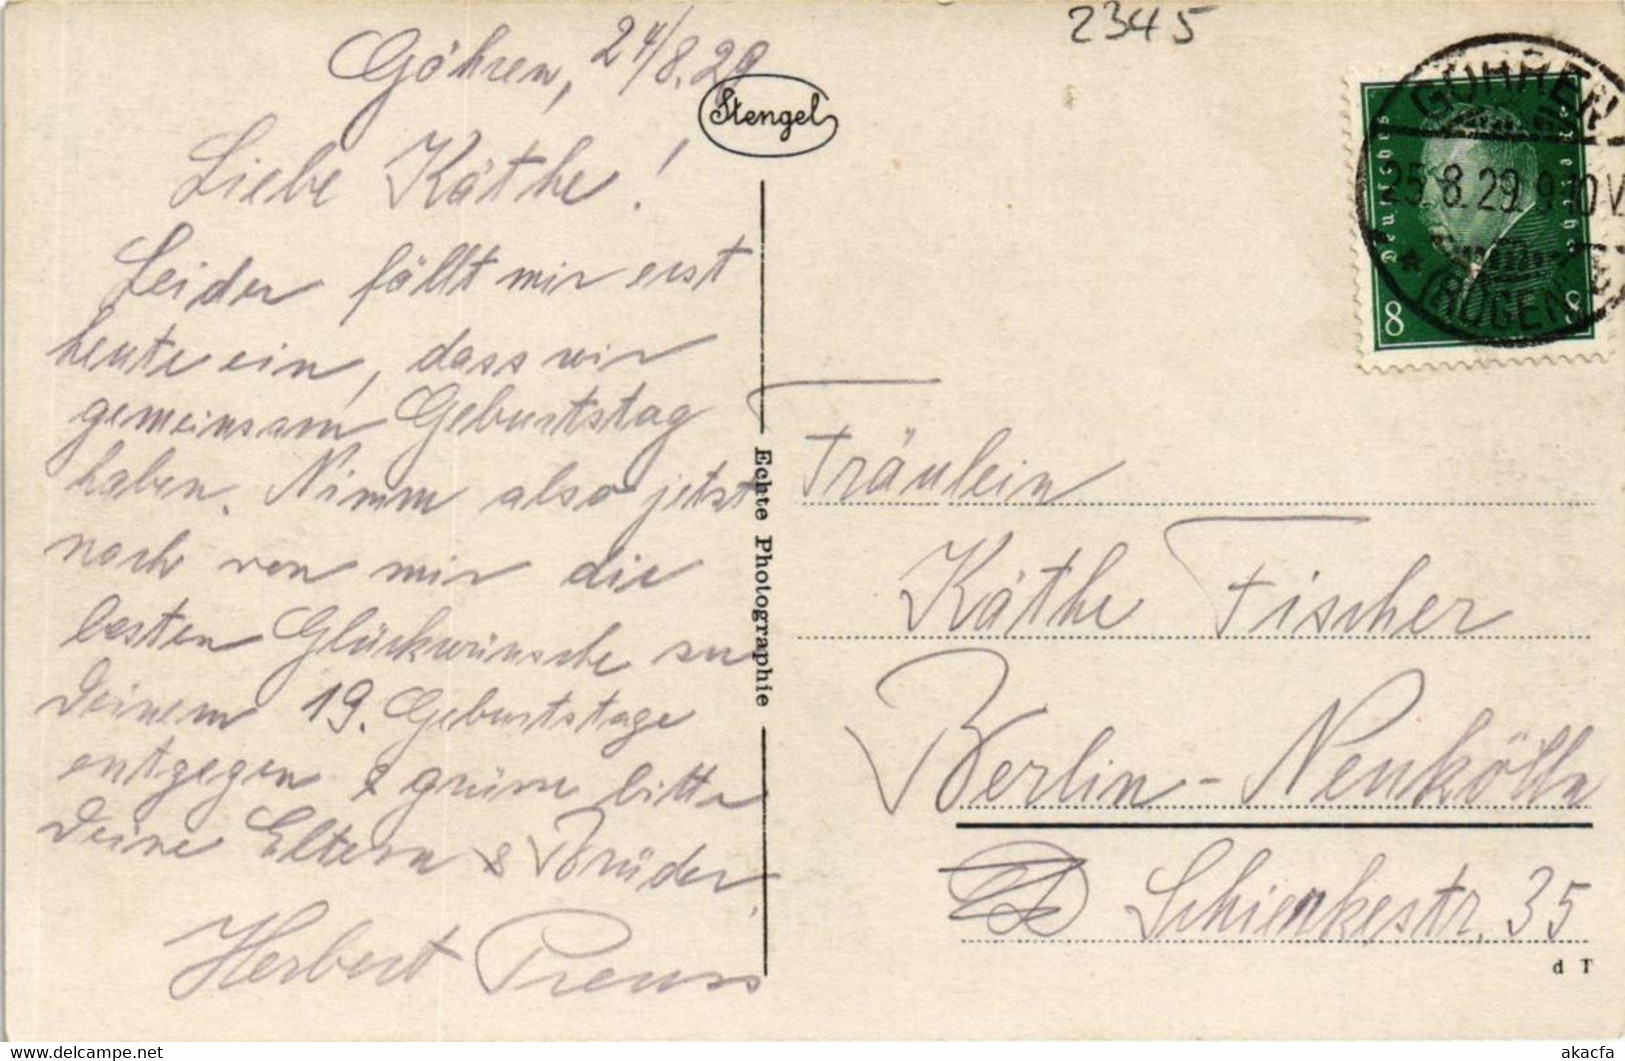 2345
Göhren, 24/8.29
Stengel
Liebe Käthe!
Leider fällt mir erst
heute ein, dass wir
gemeinsam Geburtstag
haben. Nimm also jetzt
noch von mir die
besten Glückwünsche zu
Deinem 19. Geburtstage
entgegen & grüsse bitte
Deine Eltern & Brüder.
Herbert Preuss
Echte Photographie
GÖHREN
25.8.29. 9-10 V.
(RÜGEN)
Deutsches Reich
8 8
Fräulein
Käthe Fischer
Berlin-Neukölln
Schienkestr. 35
d T
akacfa